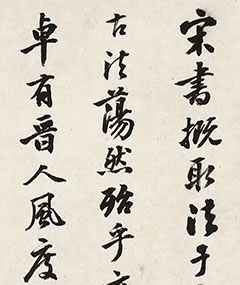 宋書概取法于
古法蕩然殆乎
卓有晋人風度